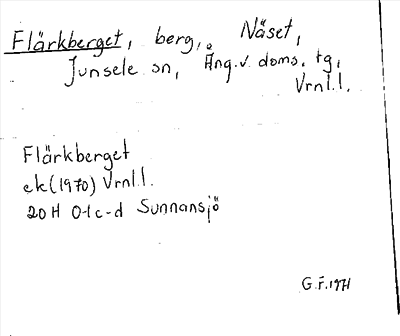 Flärkberget, berg, Näset,
Junsele sn, Ång.v. doms. tg,
Vrnl.l.
Flärkberget
ek (1970) Vrnl.l.
20H 0-1c-d Sunnansjö
G.F. 1971